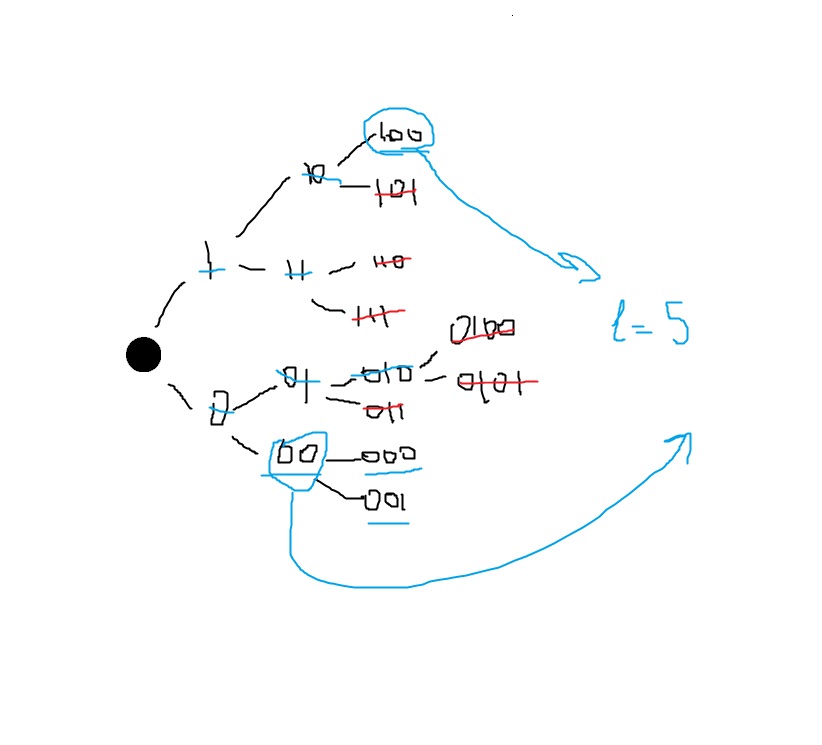 100
10
101
1
11
110
111
0100
l = 5
01
010
0101
0
011
00
000
001